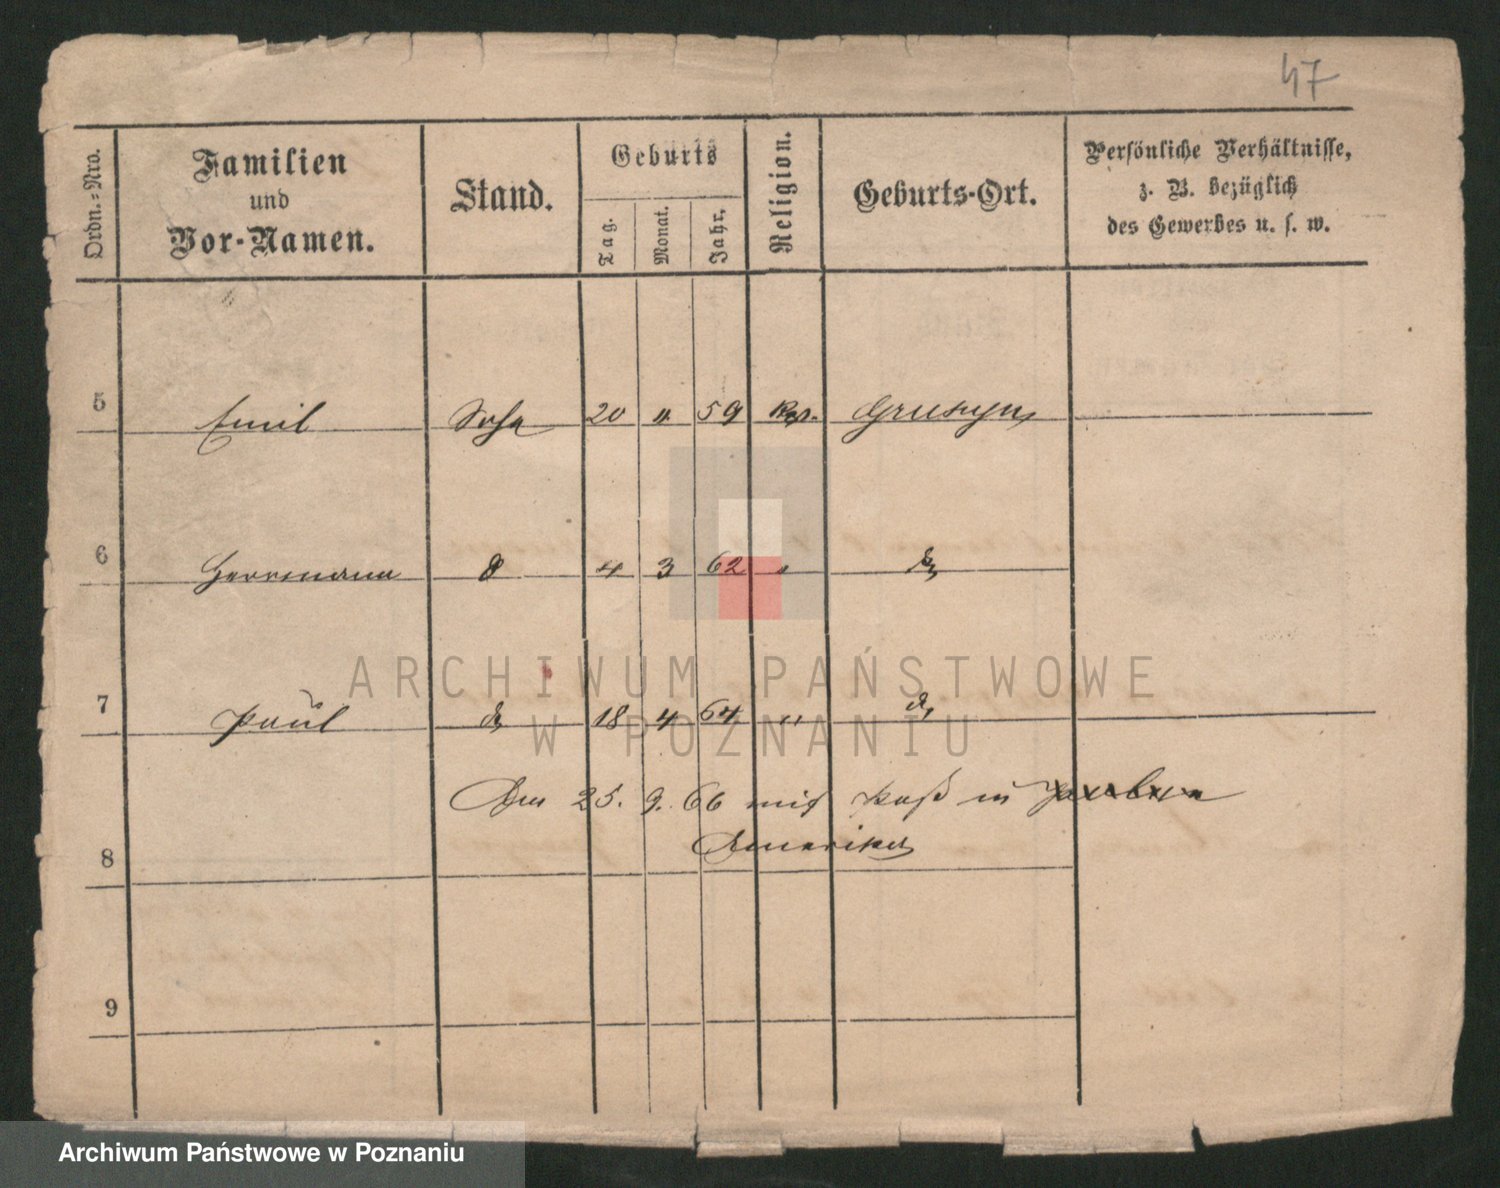 47
Ordn.-Nro.
Familien
und
Vor-Namen.
Stand.
Geburts
Tag.
Monat.
Jahr.
Religion.
Geburts-Ort.
Persönliche Verhältnisse,
z. B. bezüglich
des Gewerbes u. s. w.
5 Emil Sohn 20 4 59
6 Herrmann 4 3 62 "
7 Paul 18 4 64 "
Den 25. 9. 66 mit Paß in
Amerika
8
9
ARCHIWUM PAŃSTWOWE
W POZNANIU
Archiwum Państwowe w Poznaniu